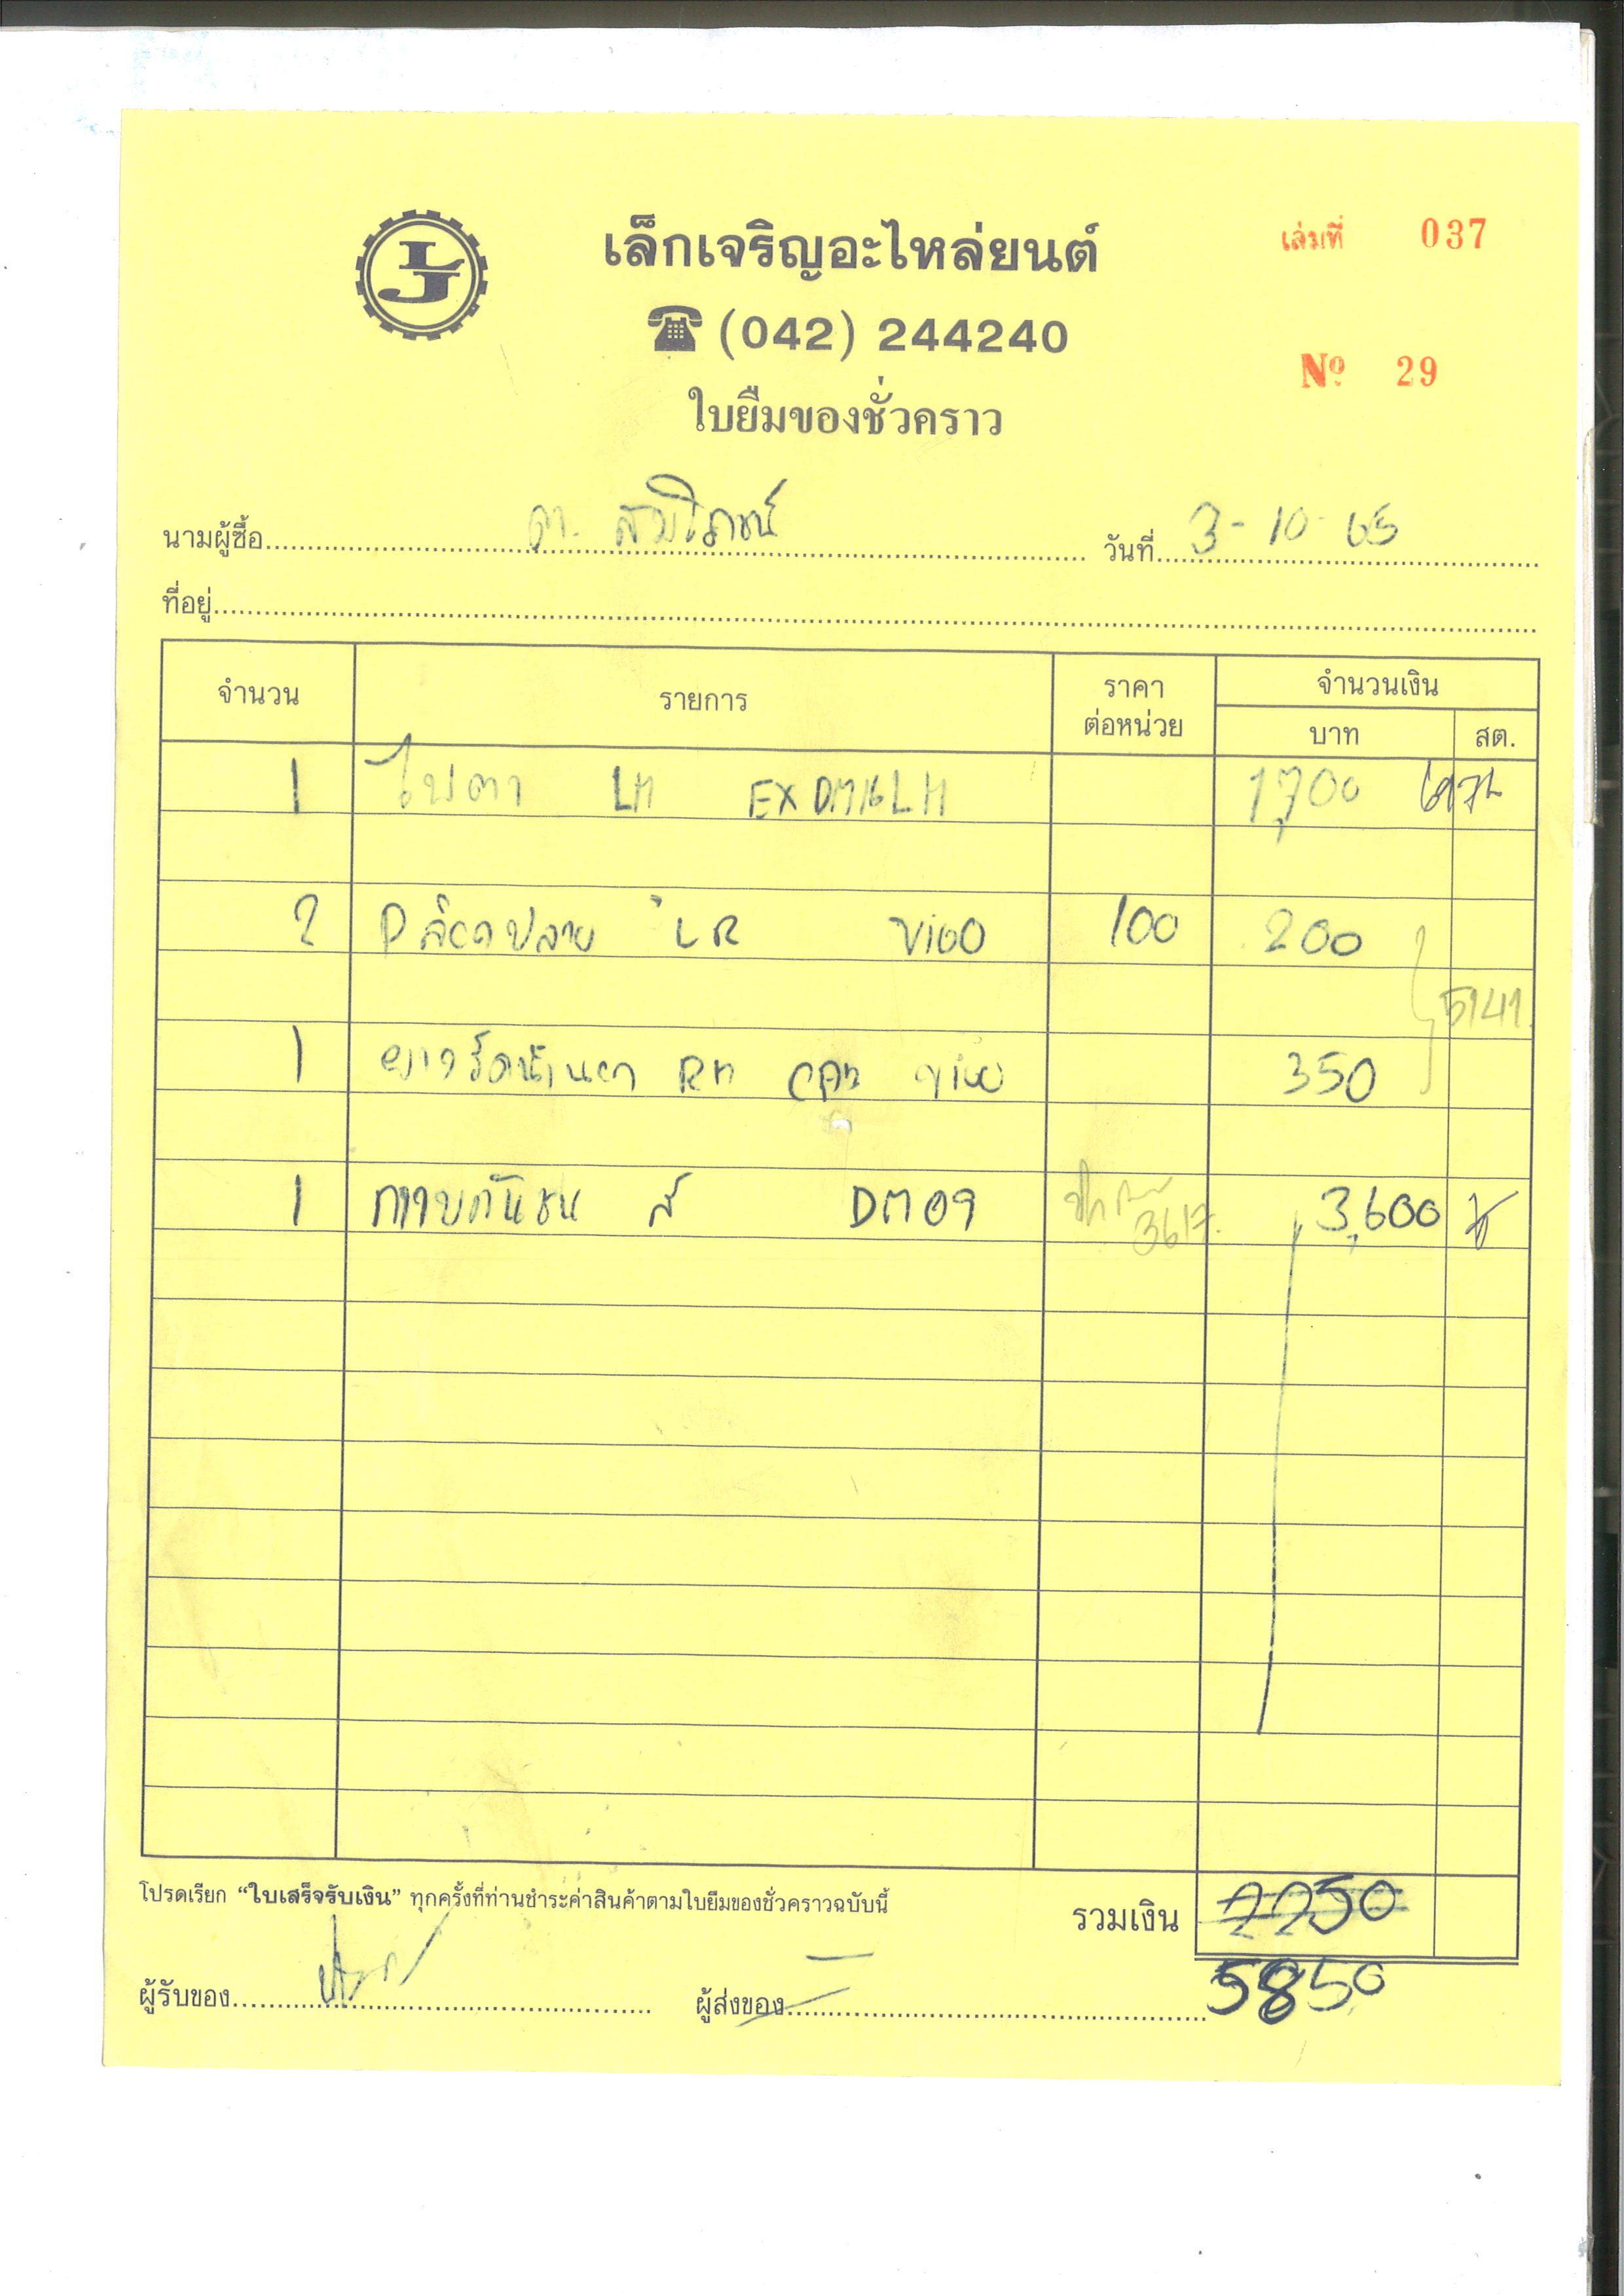 เล็กเจริญอะไหล่ยนต์
เล่มที่ 037
☎ (042) 244240
Nº 29
ใบยืมของชั่วคราว
นามผู้ซื้อ วันที่ 3-10-65
ที่อยู่
จำนวน รายการ ราคาต่อหน่วย จำนวนเงิน
บาท สต.
1 ไฟตา LH EXDM16LH 1,700
2 Pล๊อคปลาย LR ViGO 100 200
5141
1 RH CAB vigo 350
1 กาบกันชน DM09 3617 3,600
โปรดเรียก “ใบเสร็จรับเงิน” ทุกครั้งที่ท่านชำระค่าสินค้าตามใบยืมของชั่วคราวฉบับนี้
รวมเงิน 2250
5850
ผู้รับของ ผู้ส่งของ